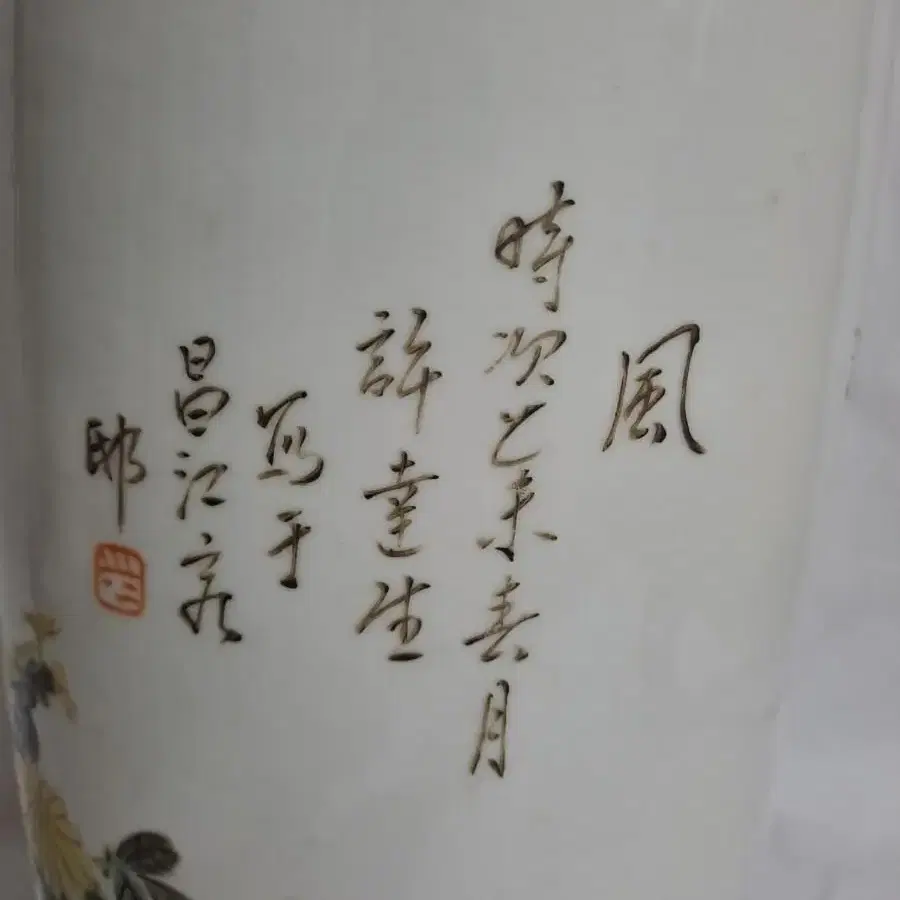 風
時次乙未春月
許達生
寫于
昌江客
邸